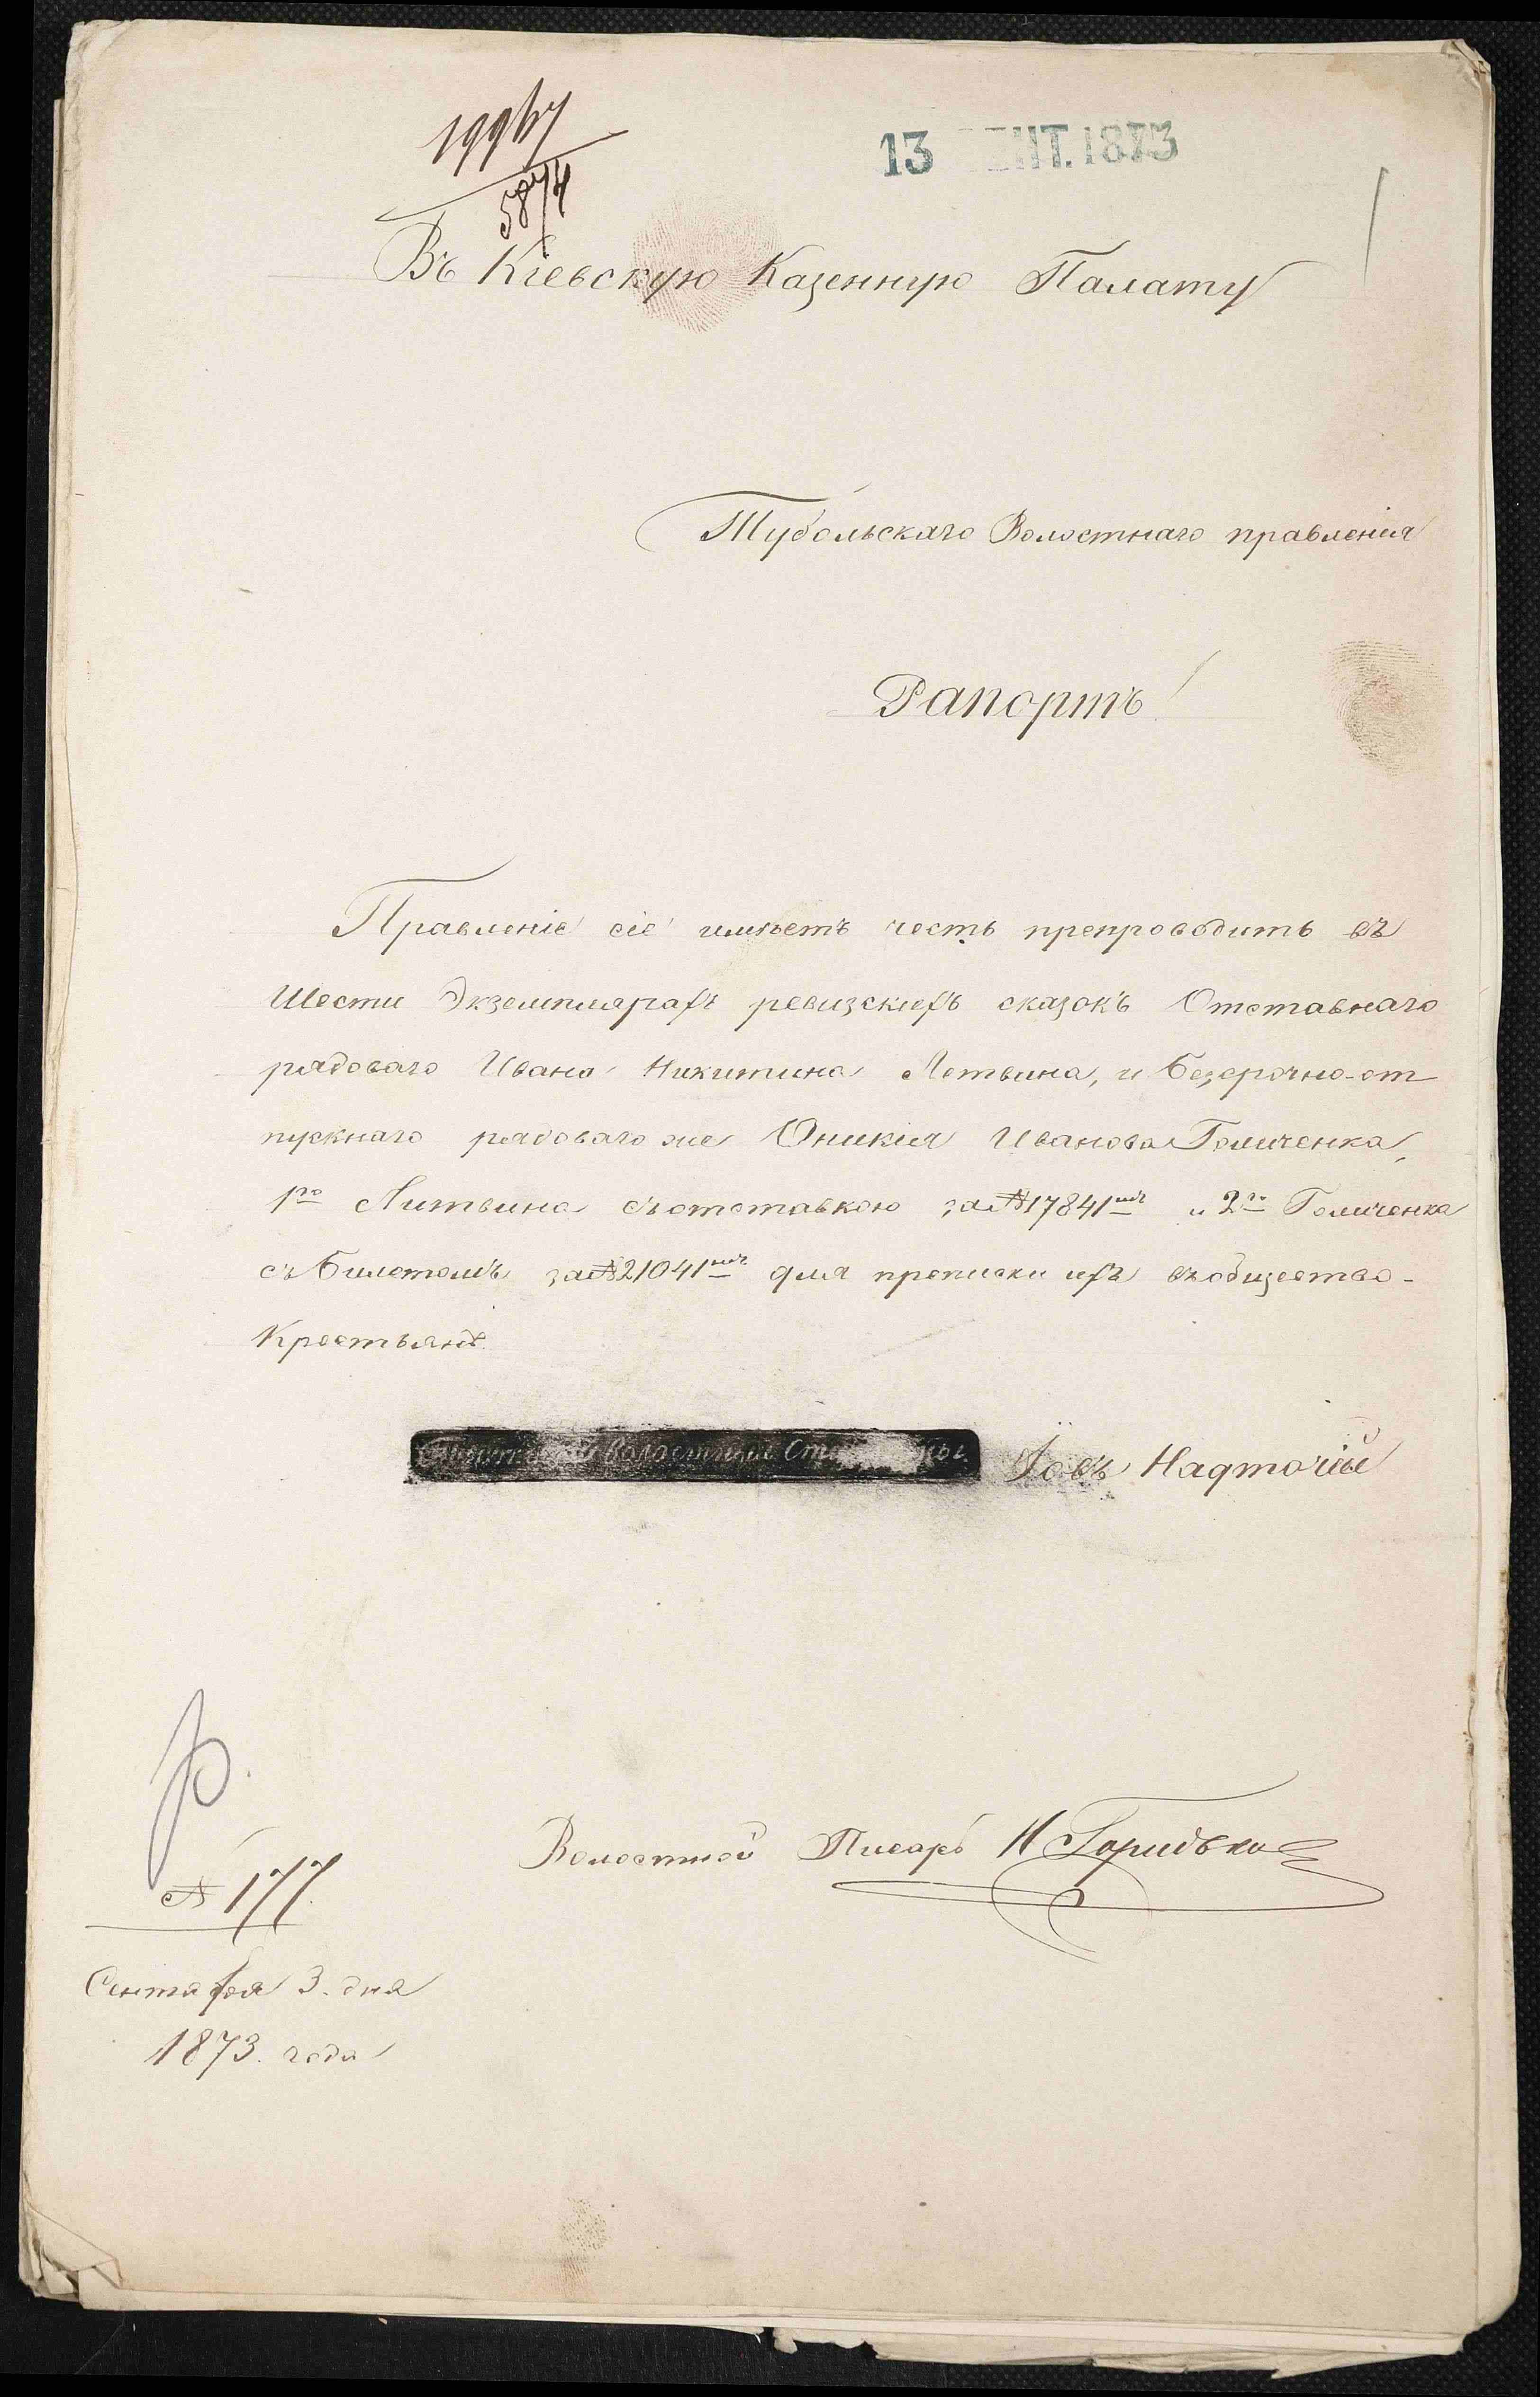 19967
5874
13 СЕНТ. 1873
Въ Кіевскую Казенную Палату
Тубольскаго Волостнаго правленія
Рапортъ
Правленіе сіе имѣетъ честь препроводить въ
Шести Экземплярахъ ревизскихъ сказокъ Отставнаго
рядоваго Ивана Никитина Летвина, и Безсрочно-от
пускнаго рядоваго же Оникия Иванова Голиченка,
1го Литвина съ отставкою за № 17841мъ и 2го Голиченка
съ Билетомъ за № 21041мъ для прописки ихъ въ общество-
Крестьянъ.
Волостный Ста
Іовъ Надточій
Волостной Писарь Н
№ 177.
Сентября 3. дня
1873. года